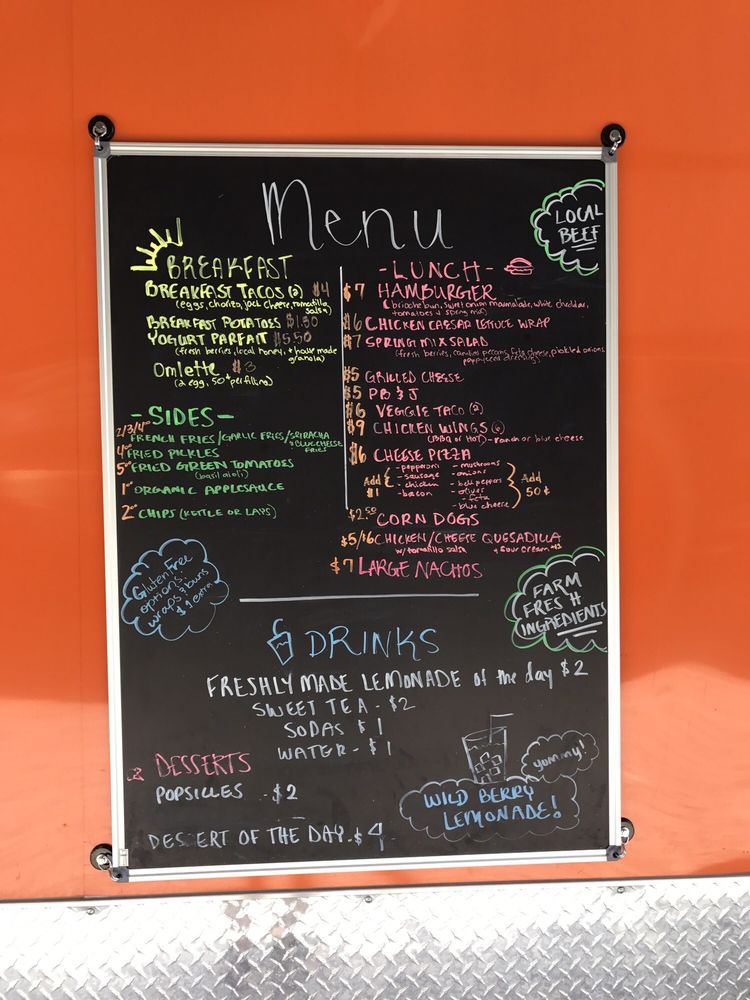 Menu
LOCAL
BEEF
BREAKFAST
BREAKFAST TACOS (2) $4
(eggs, chorizo, jack cheese, tomatillo
salsa)
BREAKFAST POTATOES $1.50
YOGURT PARFAIT $5.50
(fresh berries, local honey, + house made
granola)
Omlette $3
(2 egg, 50¢ per filling)
-SIDES-
2/3/4⁰⁰ FRENCH FRIES/GARLIC FRIES/SRIRACHA
+ BLUE CHEESE
FRIES
4⁰⁰ FRIED PICKLES
5⁰⁰ FRIED GREEN TOMATOES
(basil aioli)
1⁰⁰ ORGANIC APPLESAUCE
2⁰⁰ CHIPS (KETTLE OR LAYS)
Gluten Free
options:
wraps & buns
$1 extra
-LUNCH-
$7 HAMBURGER
(brioche bun, sweet onion marmalade, white cheddar,
tomatoes & spring mix)
$6 CHICKEN CAESAR LETTUCE WRAP
$7 SPRING MIX SALAD
(fresh berries, candied pecans, feta cheese, pickled onions
poppyseed dressing)
$5 GRILLED CHEESE
$5 PB & J
$6 VEGGIE TACO (2)
$9 CHICKEN WINGS (6)
(BBQ or HOT) - ranch or blue cheese
$6 CHEESE PIZZA
Add
$1
- pepperoni
- sausage
- chicken
- bacon
- mushrooms
- onions
- bell peppers
- olives
- feta
- blue cheese
Add
50¢
$2.50 CORN DOGS
$5/$6 CHICKEN/CHEESE QUESADILLA
w/ tomatillo salsa + sour cream
$7 LARGE NACHOS
FARM
FRESH
INGREDIENTS
DRINKS
FRESHLY MADE LEMONADE of the day $2
SWEET TEA - $2
SODAS $1
WATER - $1
DESSERTS
POPSICLES - $2
DESSERT OF THE DAY - $4
yummy!
WILD BERRY
LEMONADE!